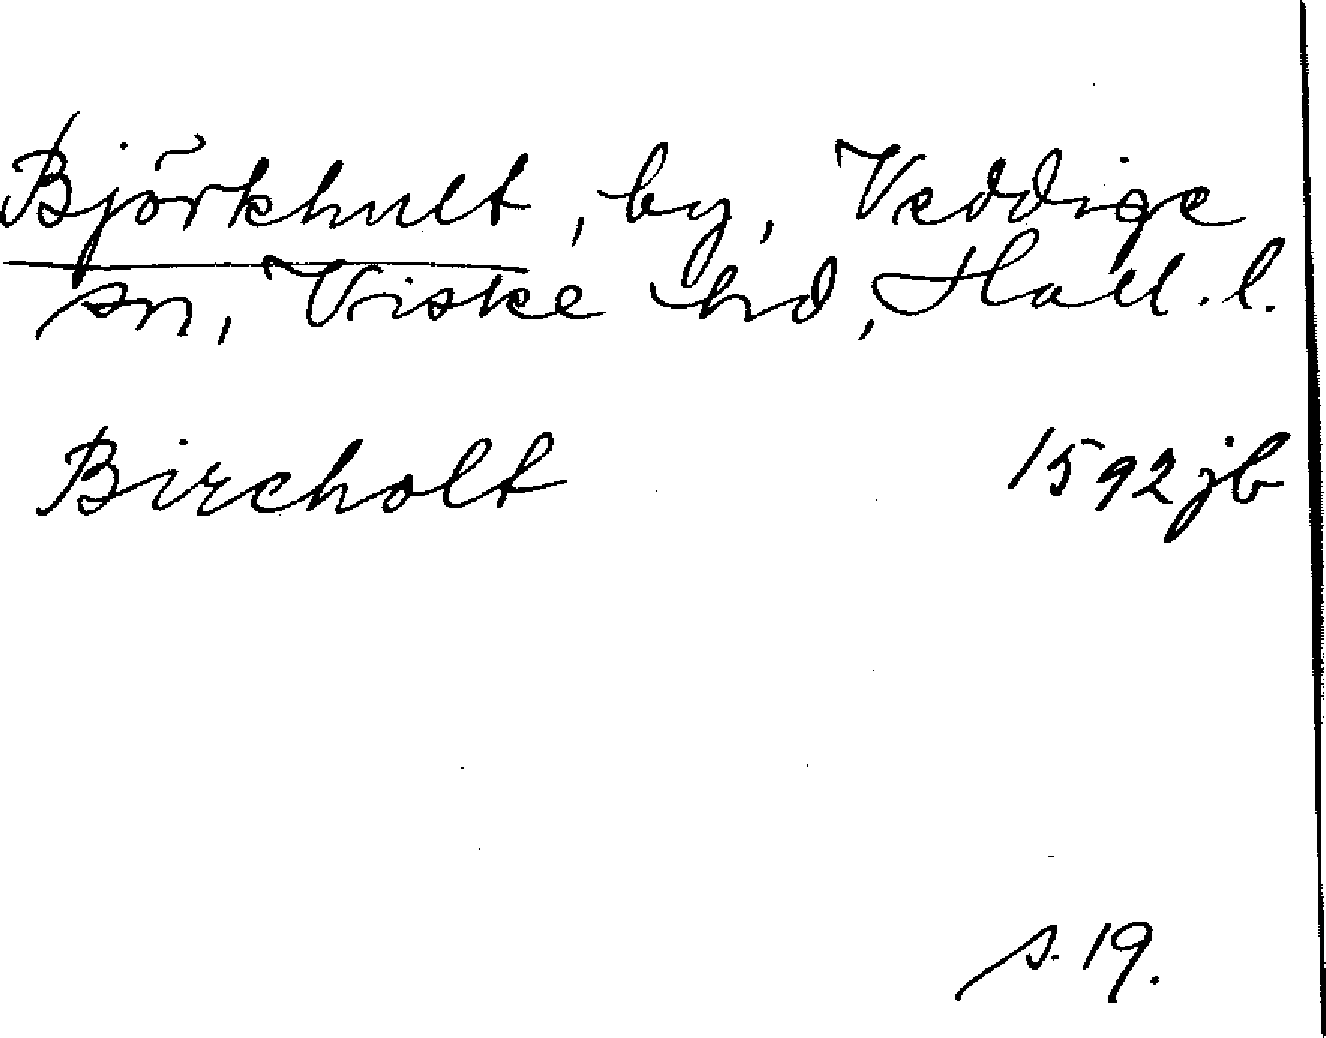 Björkhult, by, Veddige
sn, Viske hd, Hall. l.
Bircholt 1592 jb
s. 19.